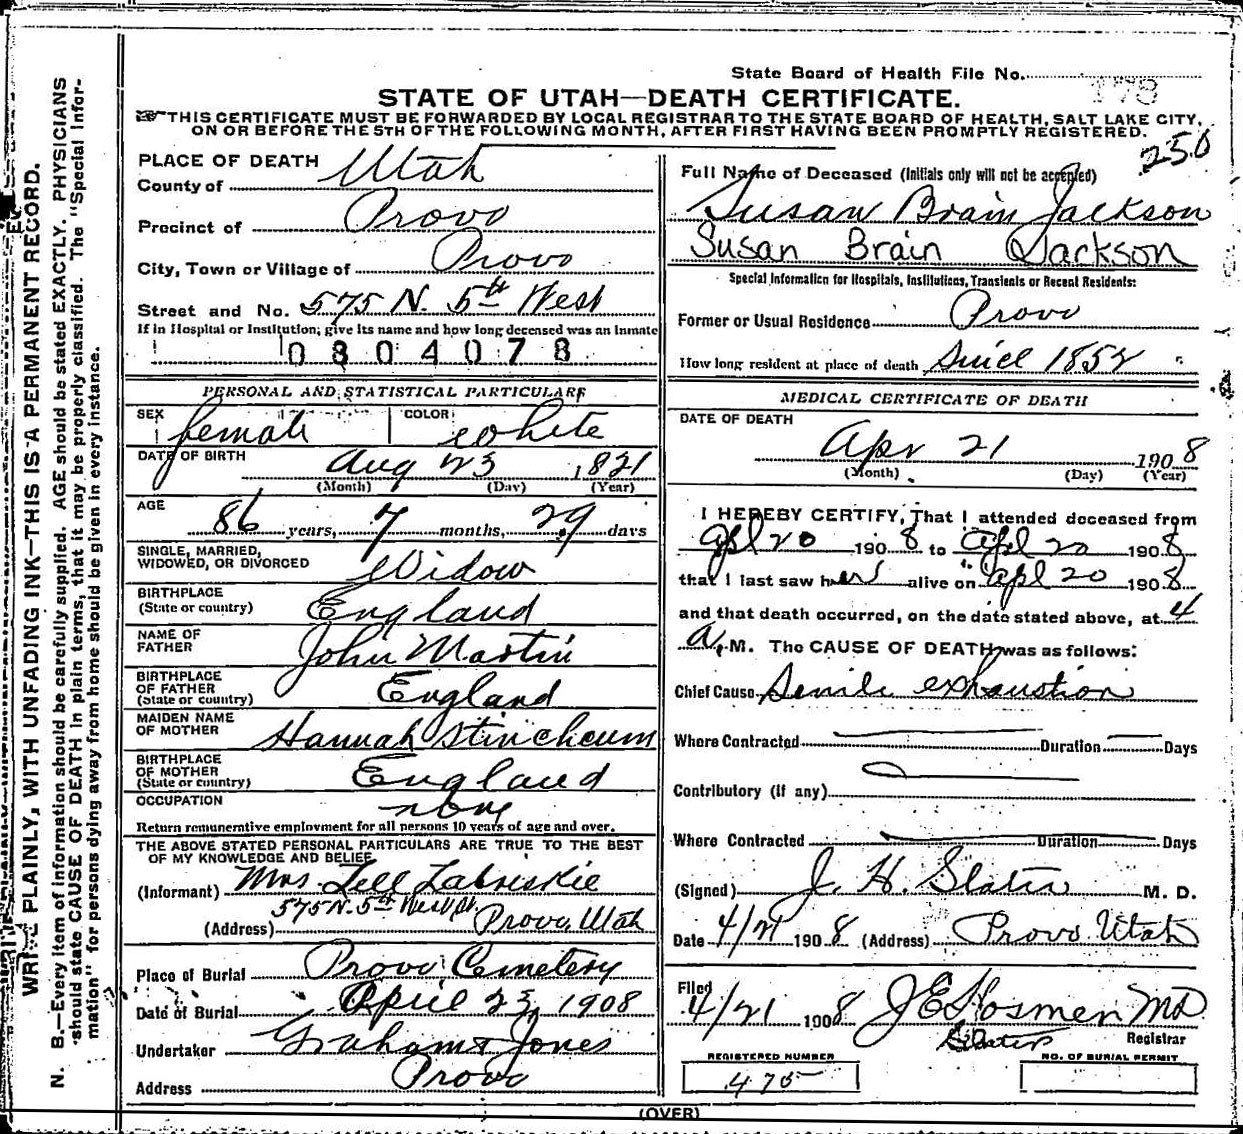 State Board of Health File No. 178
STATE OF UTAH—DEATH CERTIFICATE.
THIS CERTIFICATE MUST BE FORWARDED BY LOCAL REGISTRAR TO THE STATE BOARD OF HEALTH, SALT LAKE CITY,
ON OR BEFORE THE 5TH OF THE FOLLOWING MONTH, AFTER FIRST HAVING BEEN PROMPTLY REGISTERED.
250
PLACE OF DEATH
County of Utah
Precinct of Provo
City, Town or Village of Provo
Street and No. 575 N. 5th West
If in Hospital or Institution, give its name and how long deceased was an inmate
0304078
PERSONAL AND STATISTICAL PARTICULARS
SEX female COLOR white
DATE OF BIRTH Aug 23 1821
(Month) (Day) (Year)
AGE 86 years, 7 months, 29 days
SINGLE, MARRIED,
WIDOWED, OR DIVORCED Widow
BIRTHPLACE
(State or country) England
NAME OF
FATHER John Martin
BIRTHPLACE
OF FATHER
(State or country) England
MAIDEN NAME
OF MOTHER Hannah Stincheum
BIRTHPLACE
OF MOTHER
(State or country) England
OCCUPATION none
Return remunerative employment for all persons 10 years of age and over.
THE ABOVE STATED PERSONAL PARTICULARS ARE TRUE TO THE BEST
OF MY KNOWLEDGE AND BELIEF
(Informant) Mrs Zell Zabriskie
575 N. 5th West st.
(Address) Provo, Utah
Place of Burial Provo Cemetery
Date of Burial April 23, 1908
Undertaker Graham & Jones
Address Provo
Full Name of Deceased (Initials only will not be accepted)
Susan Brain Jackson
Susan Brain Jackson
Special Information for Hospitals, Institutions, Transients or Recent Residents:
Former or Usual Residence Provo
How long resident at place of death Since 1852
MEDICAL CERTIFICATE OF DEATH
DATE OF DEATH
Apr 21 1908
(Month) (Day) (Year)
I HEREBY CERTIFY, That I attended deceased from
Apl 20 1908 to Apl 20 1908
that I last saw her alive on Apl 20 1908
and that death occurred, on the date stated above, at 4
A. M. The CAUSE OF DEATH was as follows:
Chief Cause Senile exhaustion
Where Contracted Duration Days
Contributory (if any)
Where Contracted Duration Days
(Signed) J. H. Slater M. D.
Date 4/21 1908 (Address) Provo Utah
Filed
4/21 1908 J E Hosmer MD
Registrar
REGISTERED NUMBER
475
NO. OF BURIAL PERMIT
(OVER)
WRITE PLAINLY, WITH UNFADING INK—THIS IS A PERMANENT RECORD.
N. B.—Every item of information should be carefully supplied. AGE should be stated EXACTLY. PHYSICIANS
should state CAUSE OF DEATH in plain terms, that it may be properly classified. The "Special Infor-
mation" for persons dying away from home should be given in every instance.